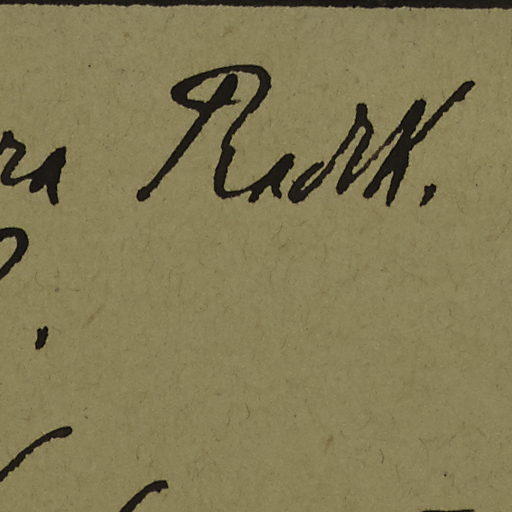 ra Radlk.